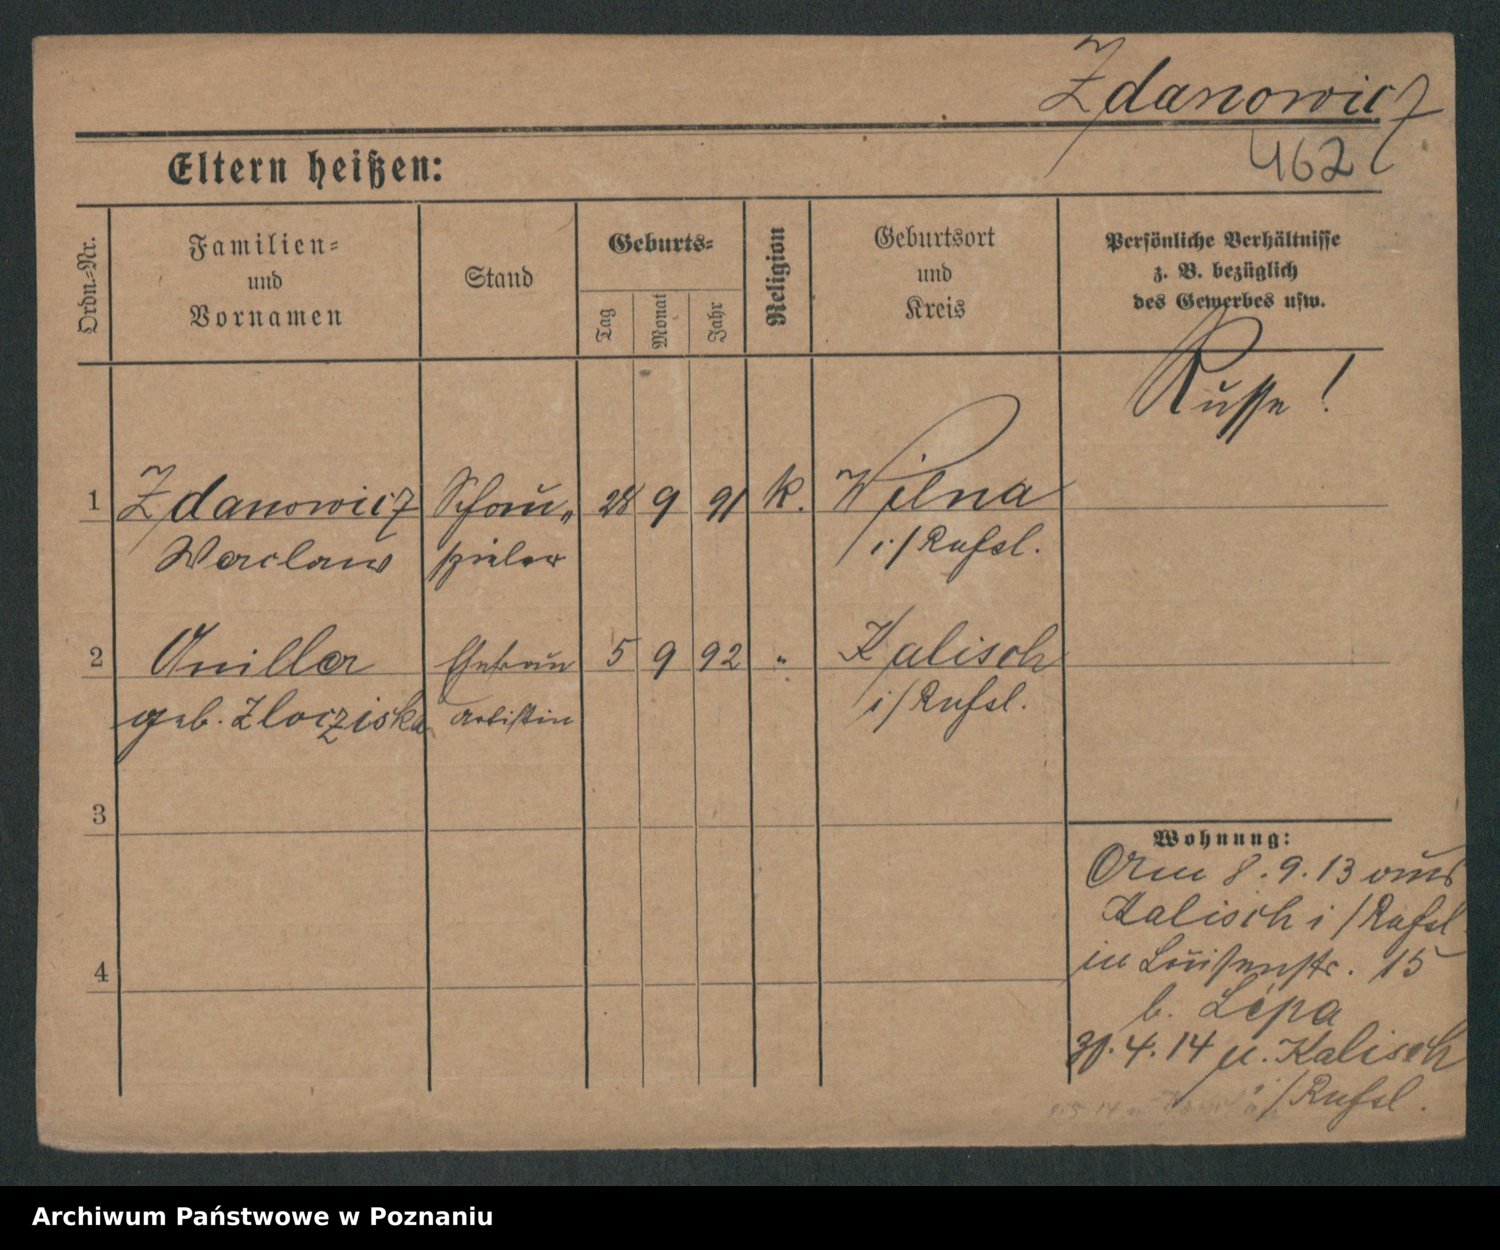 Zdanowicz
462
Eltern heißen:
Ordn.-Nr.
Familien-
und
Vornamen
Stand
Geburts-
Tag
Monat
Jahr
Religion
Geburtsort
und
Kreis
Persönliche Verhältnisse
z. B. bezüglich
des Gewerbes usw.
Russe!
1 Zdanowicz Schau„ 28 9 91 k. Wilna
Waclaw spieler i/Rußl.
2 Ehefrau 5 9 92 " Kalisch
geb. Artistin i/Rußl.
3
4
Wohnung:
Am 8.9.13 aus
Kalisch i/Rußl.
in Luisenstr. 15
b. Lepa
30.4.14 n. Kalisch
i/Rußl.
Archiwum Państwowe w Poznaniu